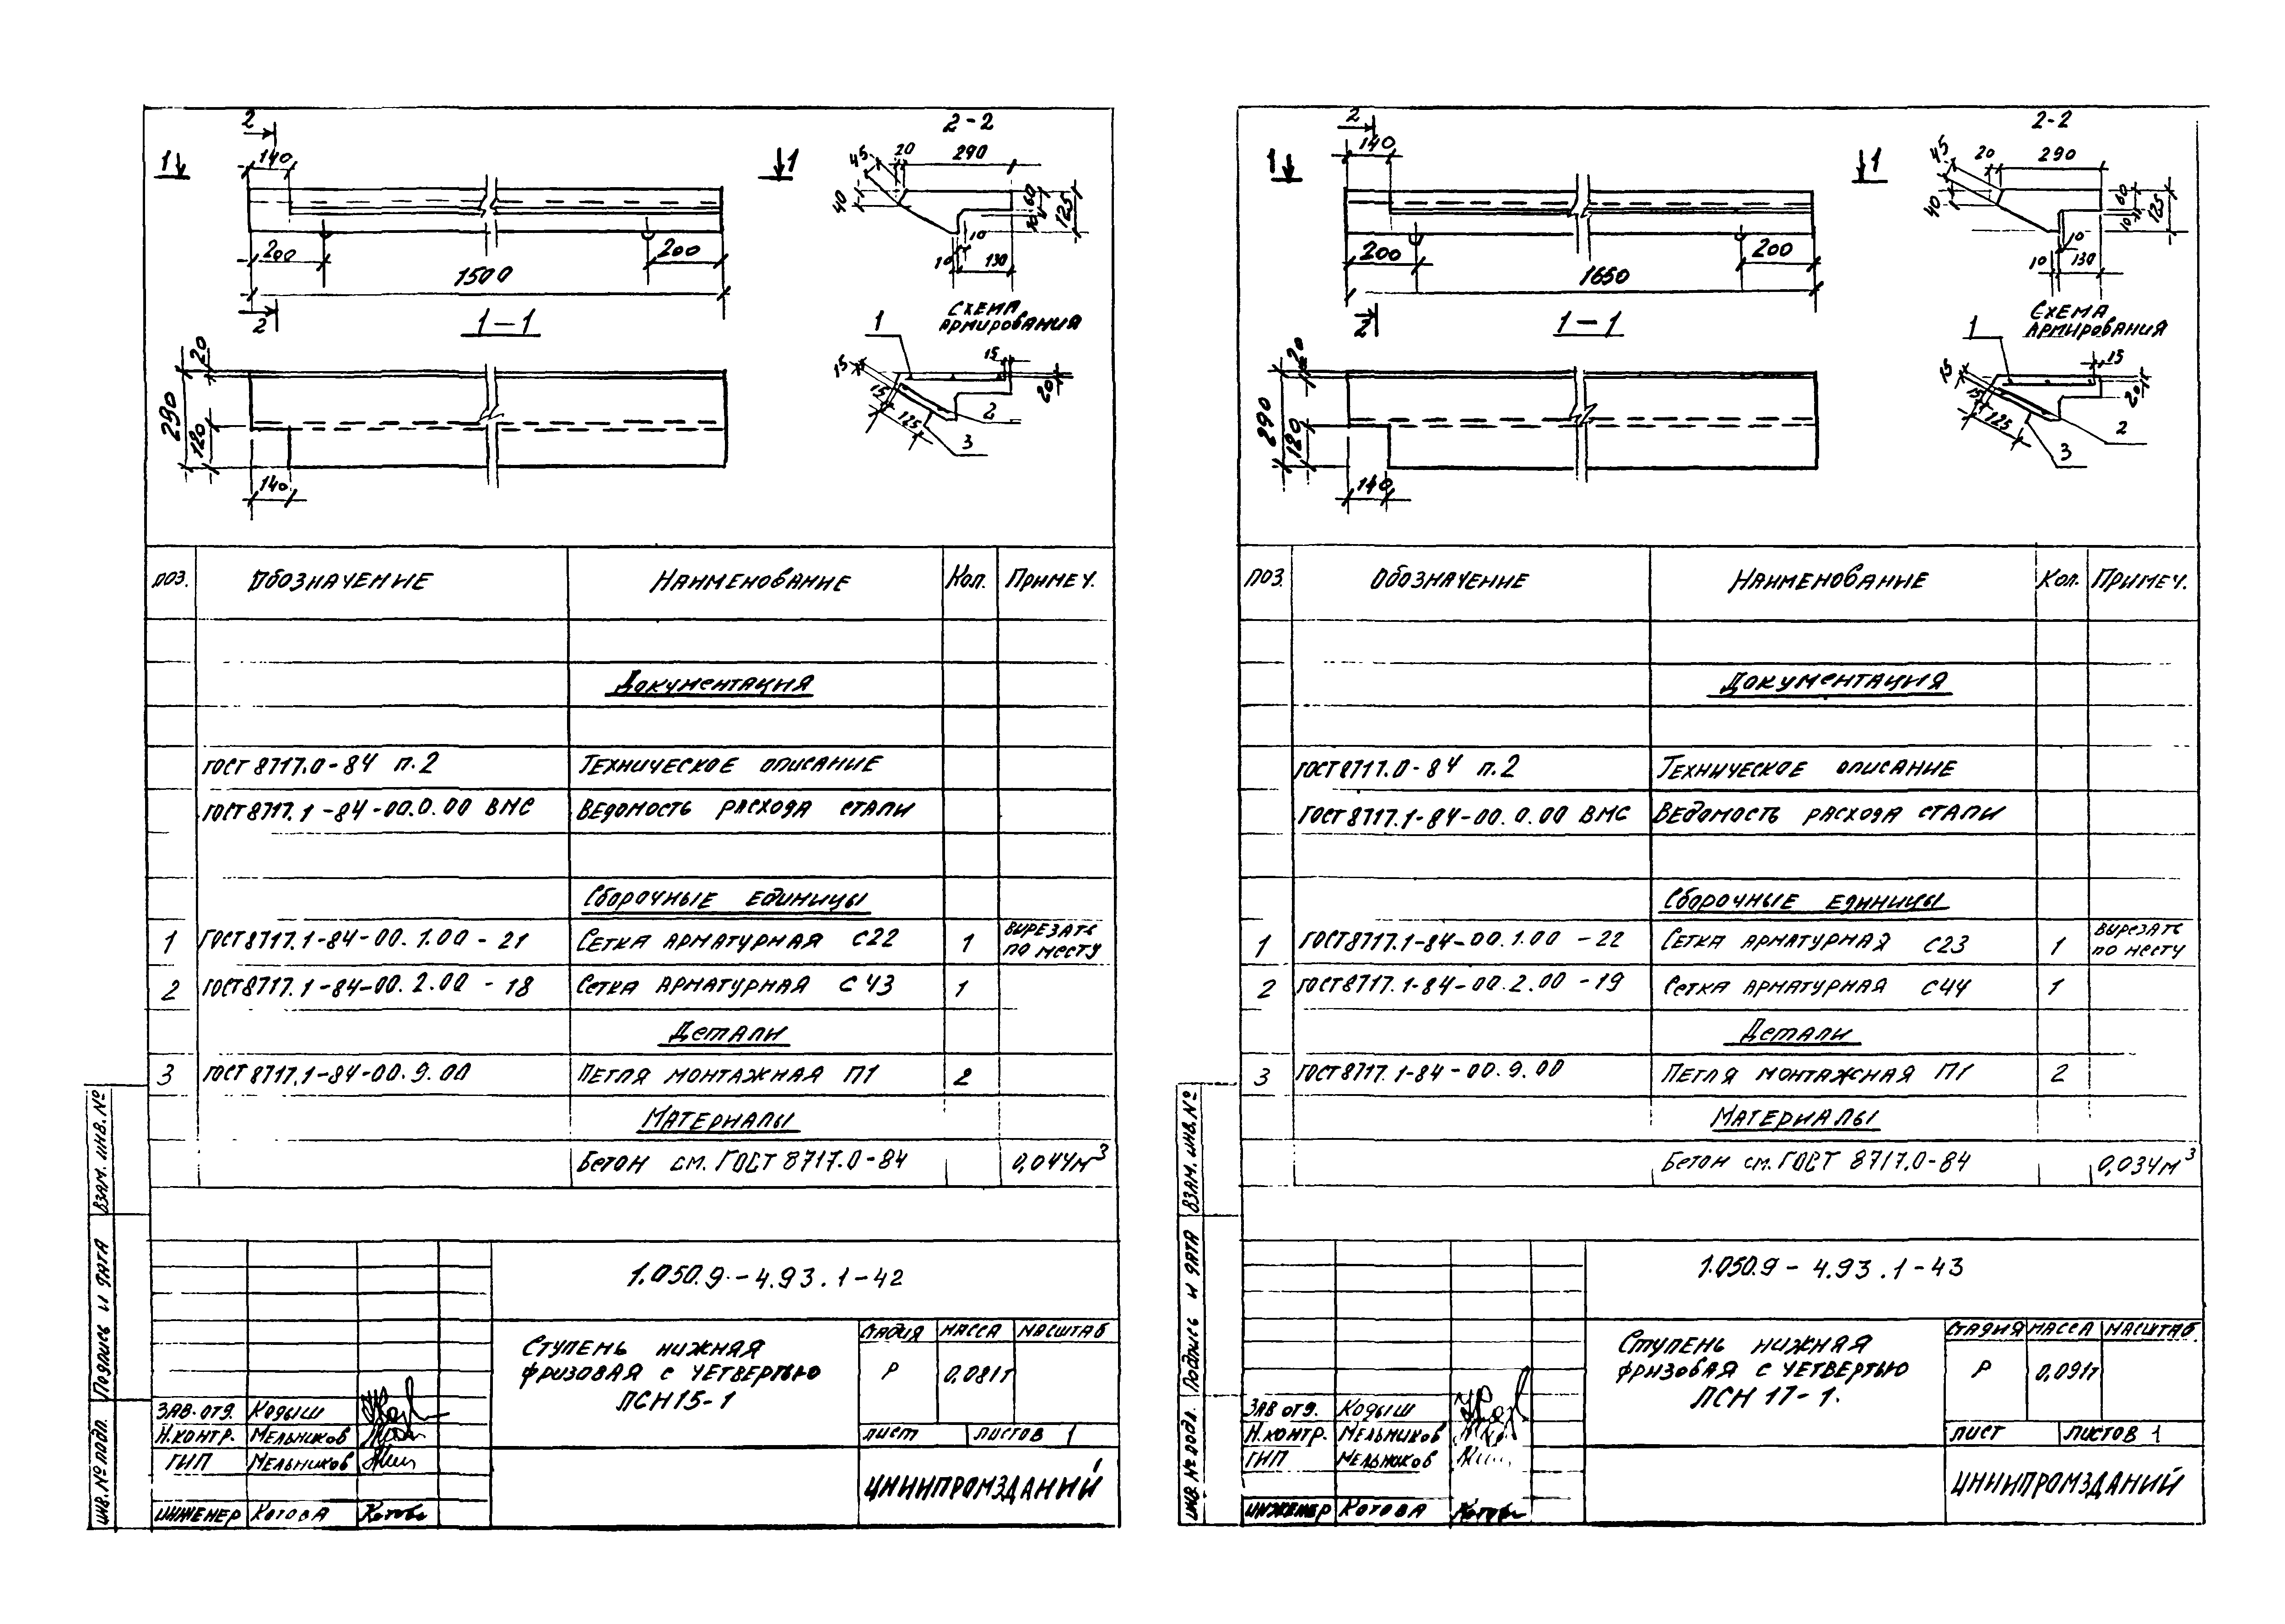 2
140
1
1
200
200
1500
2
1-1
20
290
120
140
2-2
45
20
290
40
60
125
10
10
130
Схема
армирования
1
15
15
15
20
125
2
3
поз.
Обозначение
Наименование
Кол.
Примеч.
Документация
ГОСТ 8717.0-84 п.2
Техническое описание
ГОСТ 8717.1-84-00.0.00 ВМС
Ведомость расхода стали
Сборочные единицы
1
ГОСТ 8717.1-84-00.1.00 - 21
Сетка арматурная С22
1
вырезать
по месту
2
ГОСТ 8717.1-84-00.2.00 - 18
Сетка арматурная С43
1
Детали
3
ГОСТ 8717.1-84-00.9.00
Петля монтажная П1
2
Материалы
Бетон см. ГОСТ 8717.0-84
0,044м³
1.050.9-4.93.1-42
Ступень нижняя
фризовая с четвертью
ЛСН15-1
стадия
масса
масштаб
Р
0,081т
лист
листов 1
ЦНИИПРОМЗДАНИЙ
Зав. отд. Кодыш
Н.контр. Мельников
ГИП Мельников
Инженер Котова
Взам. инв. №
Подпись и дата
Инв. № подл.
2
140
1
1
200
200
1650
2
1-1
20
290
120
140
2-2
45
20
290
40
60
10
125
10
10
130
Схема
армирования
1
15
15
15
20
125
2
3
поз.
Обозначение
Наименование
Кол.
Примеч.
Документация
ГОСТ 8717.0-84 п.2
Техническое описание
ГОСТ 8717.1-84-00.0.00 ВМС
Ведомость расхода стали
Сборочные единицы
1
ГОСТ 8717.1-84-00.1.00 - 22
Сетка арматурная С23
1
вырезать
по месту
2
ГОСТ 8717.1-84-00.2.00 - 19
Сетка арматурная С44
1
Детали
3
ГОСТ 8717.1-84-00.9.00
Петля монтажная П1
2
Материалы
Бетон см. ГОСТ 8717.0-84
0,034м³
1.050.9-4.93.1-43
Ступень нижняя
фризовая с четвертью
ЛСН 17-1.
стадия
масса
масштаб
Р
0,091т
лист
листов 1
ЦНИИПРОМЗДАНИЙ
Зав отд. Кодыш
Н.контр. Мельников
ГИП Мельников
Инженер Котова
Взам. инв. №
Подпись и дата
Инв. № подл.